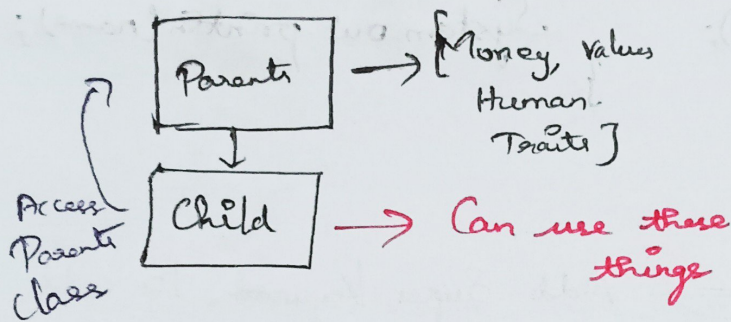 Parents
[Money, values
Human
Traits]
Child
Can use these
things
Access
Parents
Class